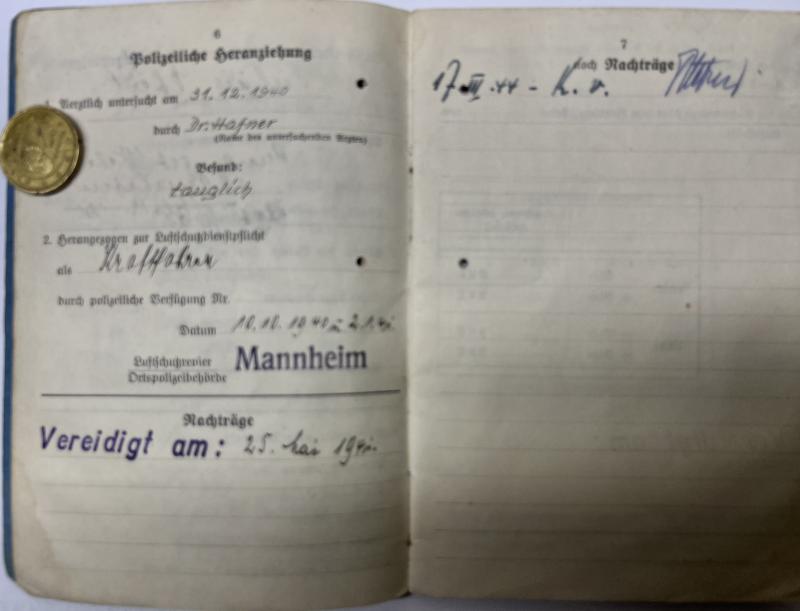 6
Polizeiliche Heranziehung
1. Aerztlich untersucht am 31. 12. 1940
durch Dr. Hafner
(Name des untersuchenden Arztes)
Befund:
tauglich
2. Herangezogen zur Luftschutzdienstpflicht
als Kraftfahrer
durch polizeiliche Verfügung Nr.
Datum 10. 10. 1940 2. 1. 41.
Luftschutzrevier Mannheim
Ortspolizeibehörde
Nachträge
Vereidigt am: 25. Mai 194
7
noch Nachträge
17. III. 44 - K. v.